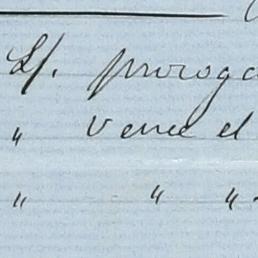 Lf. proroga
" Venne el
" " "